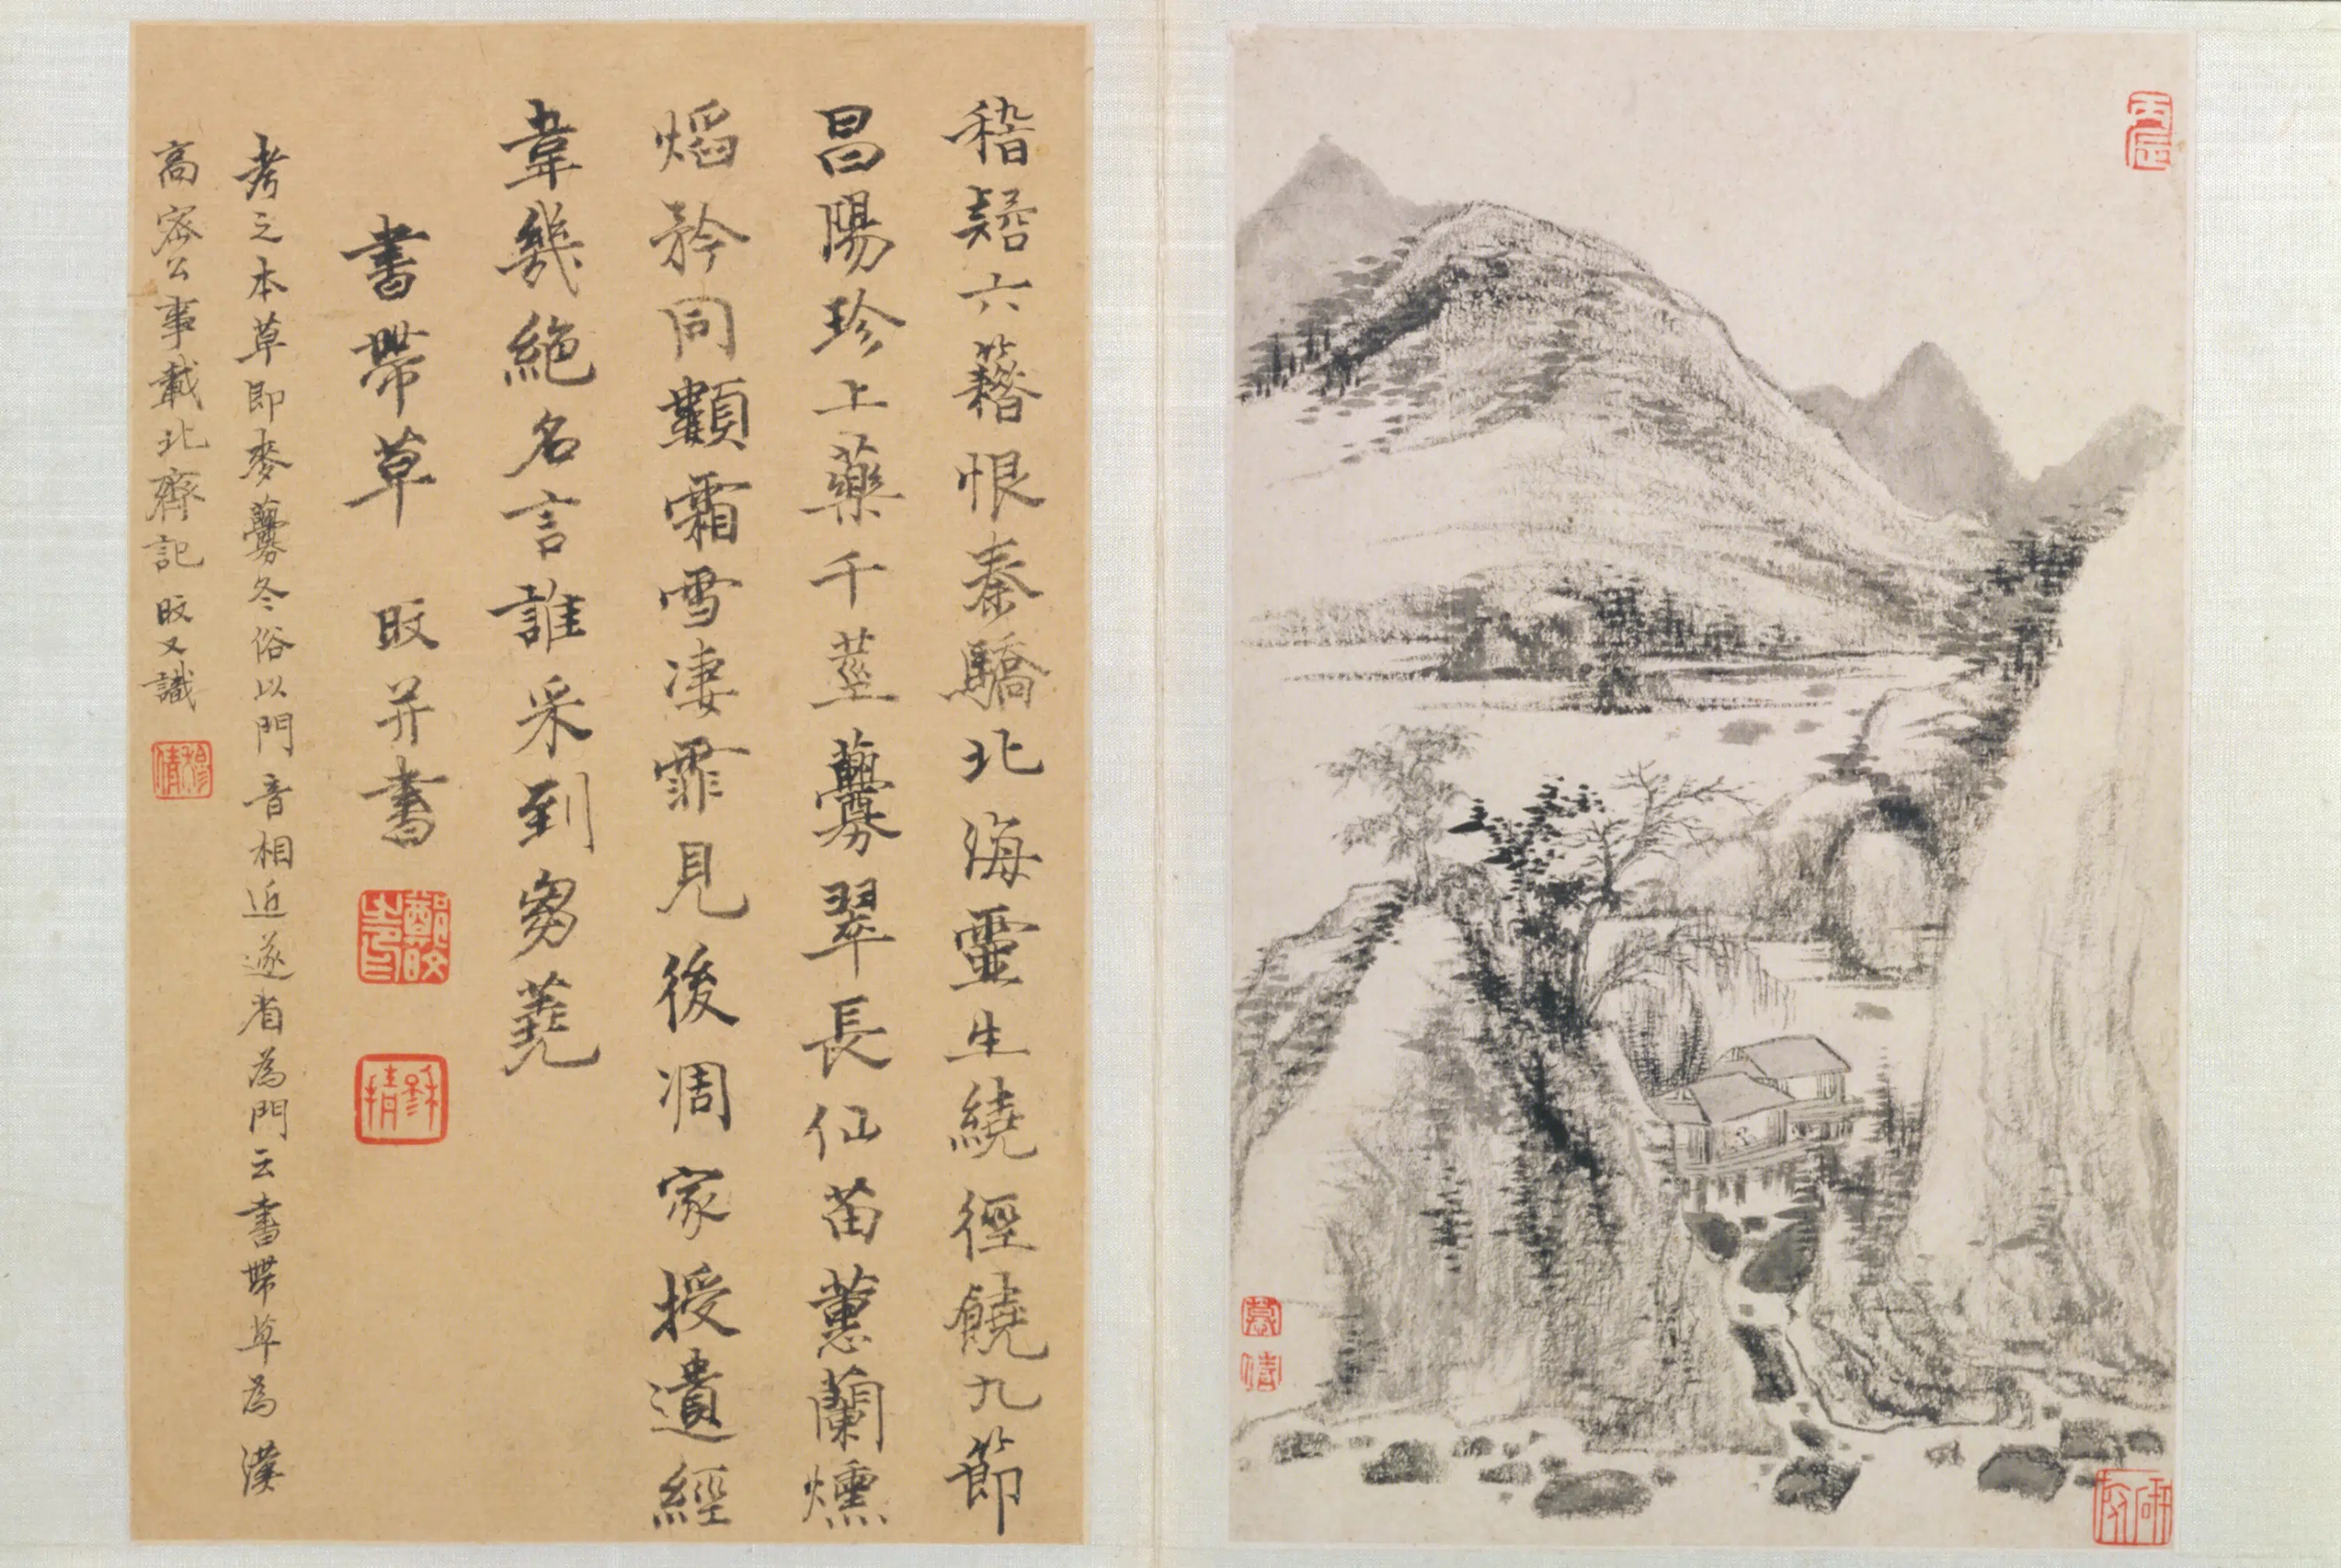 稽六籍恨秦驕北海靈生繞徑饒九節
昌陽珍上藥千莖虋翠長仙苗蕙蘭燻
焰矜同霜雪凄霏見後凋家授遺經
韋幾絕名言誰采到芻蕘
書帶草 旼并書
考之本草即麥虋冬俗以門音相近遂省為門云書帶草為漢
高密公事載北齊記 旼又識
穆倩
丙辰